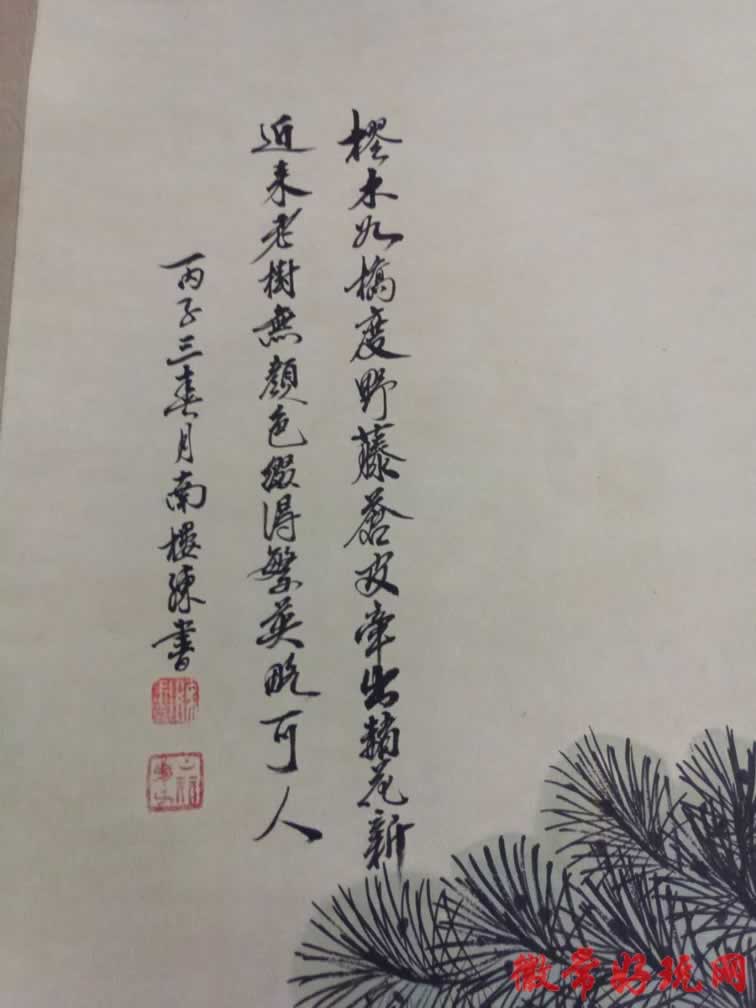 樛木如橋度野藤蒼皮牽出赭花新
近来老樹無顏色綴得繁英晚可人
丙子三春月南樓陳書
徽常好玩网